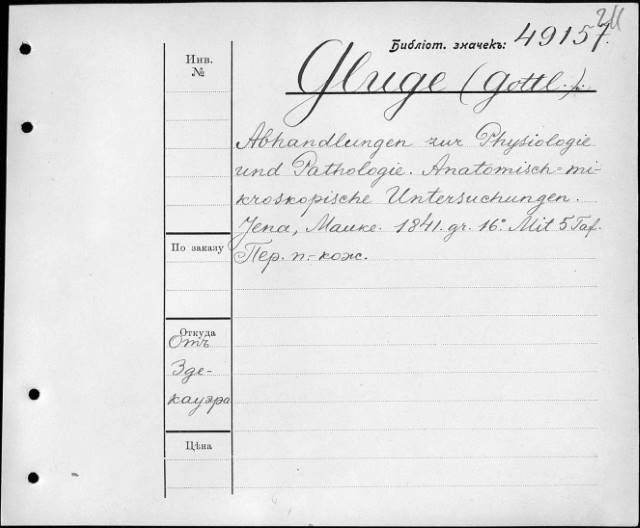 Библіот. значекъ: 49157.
Инв.
№
Gluge (Gottl.).
Abhandlungen zur Physiologie
und Pathologie. Anatomisch=mi-
kroskopische Untersuchungen.
Jena, Mauke. 1841. gr. 16°. Mit 5 Taf.
Пер. п.-кож.
По заказу
Откуда
Отъ
Зде-
кауэра
Цѣна